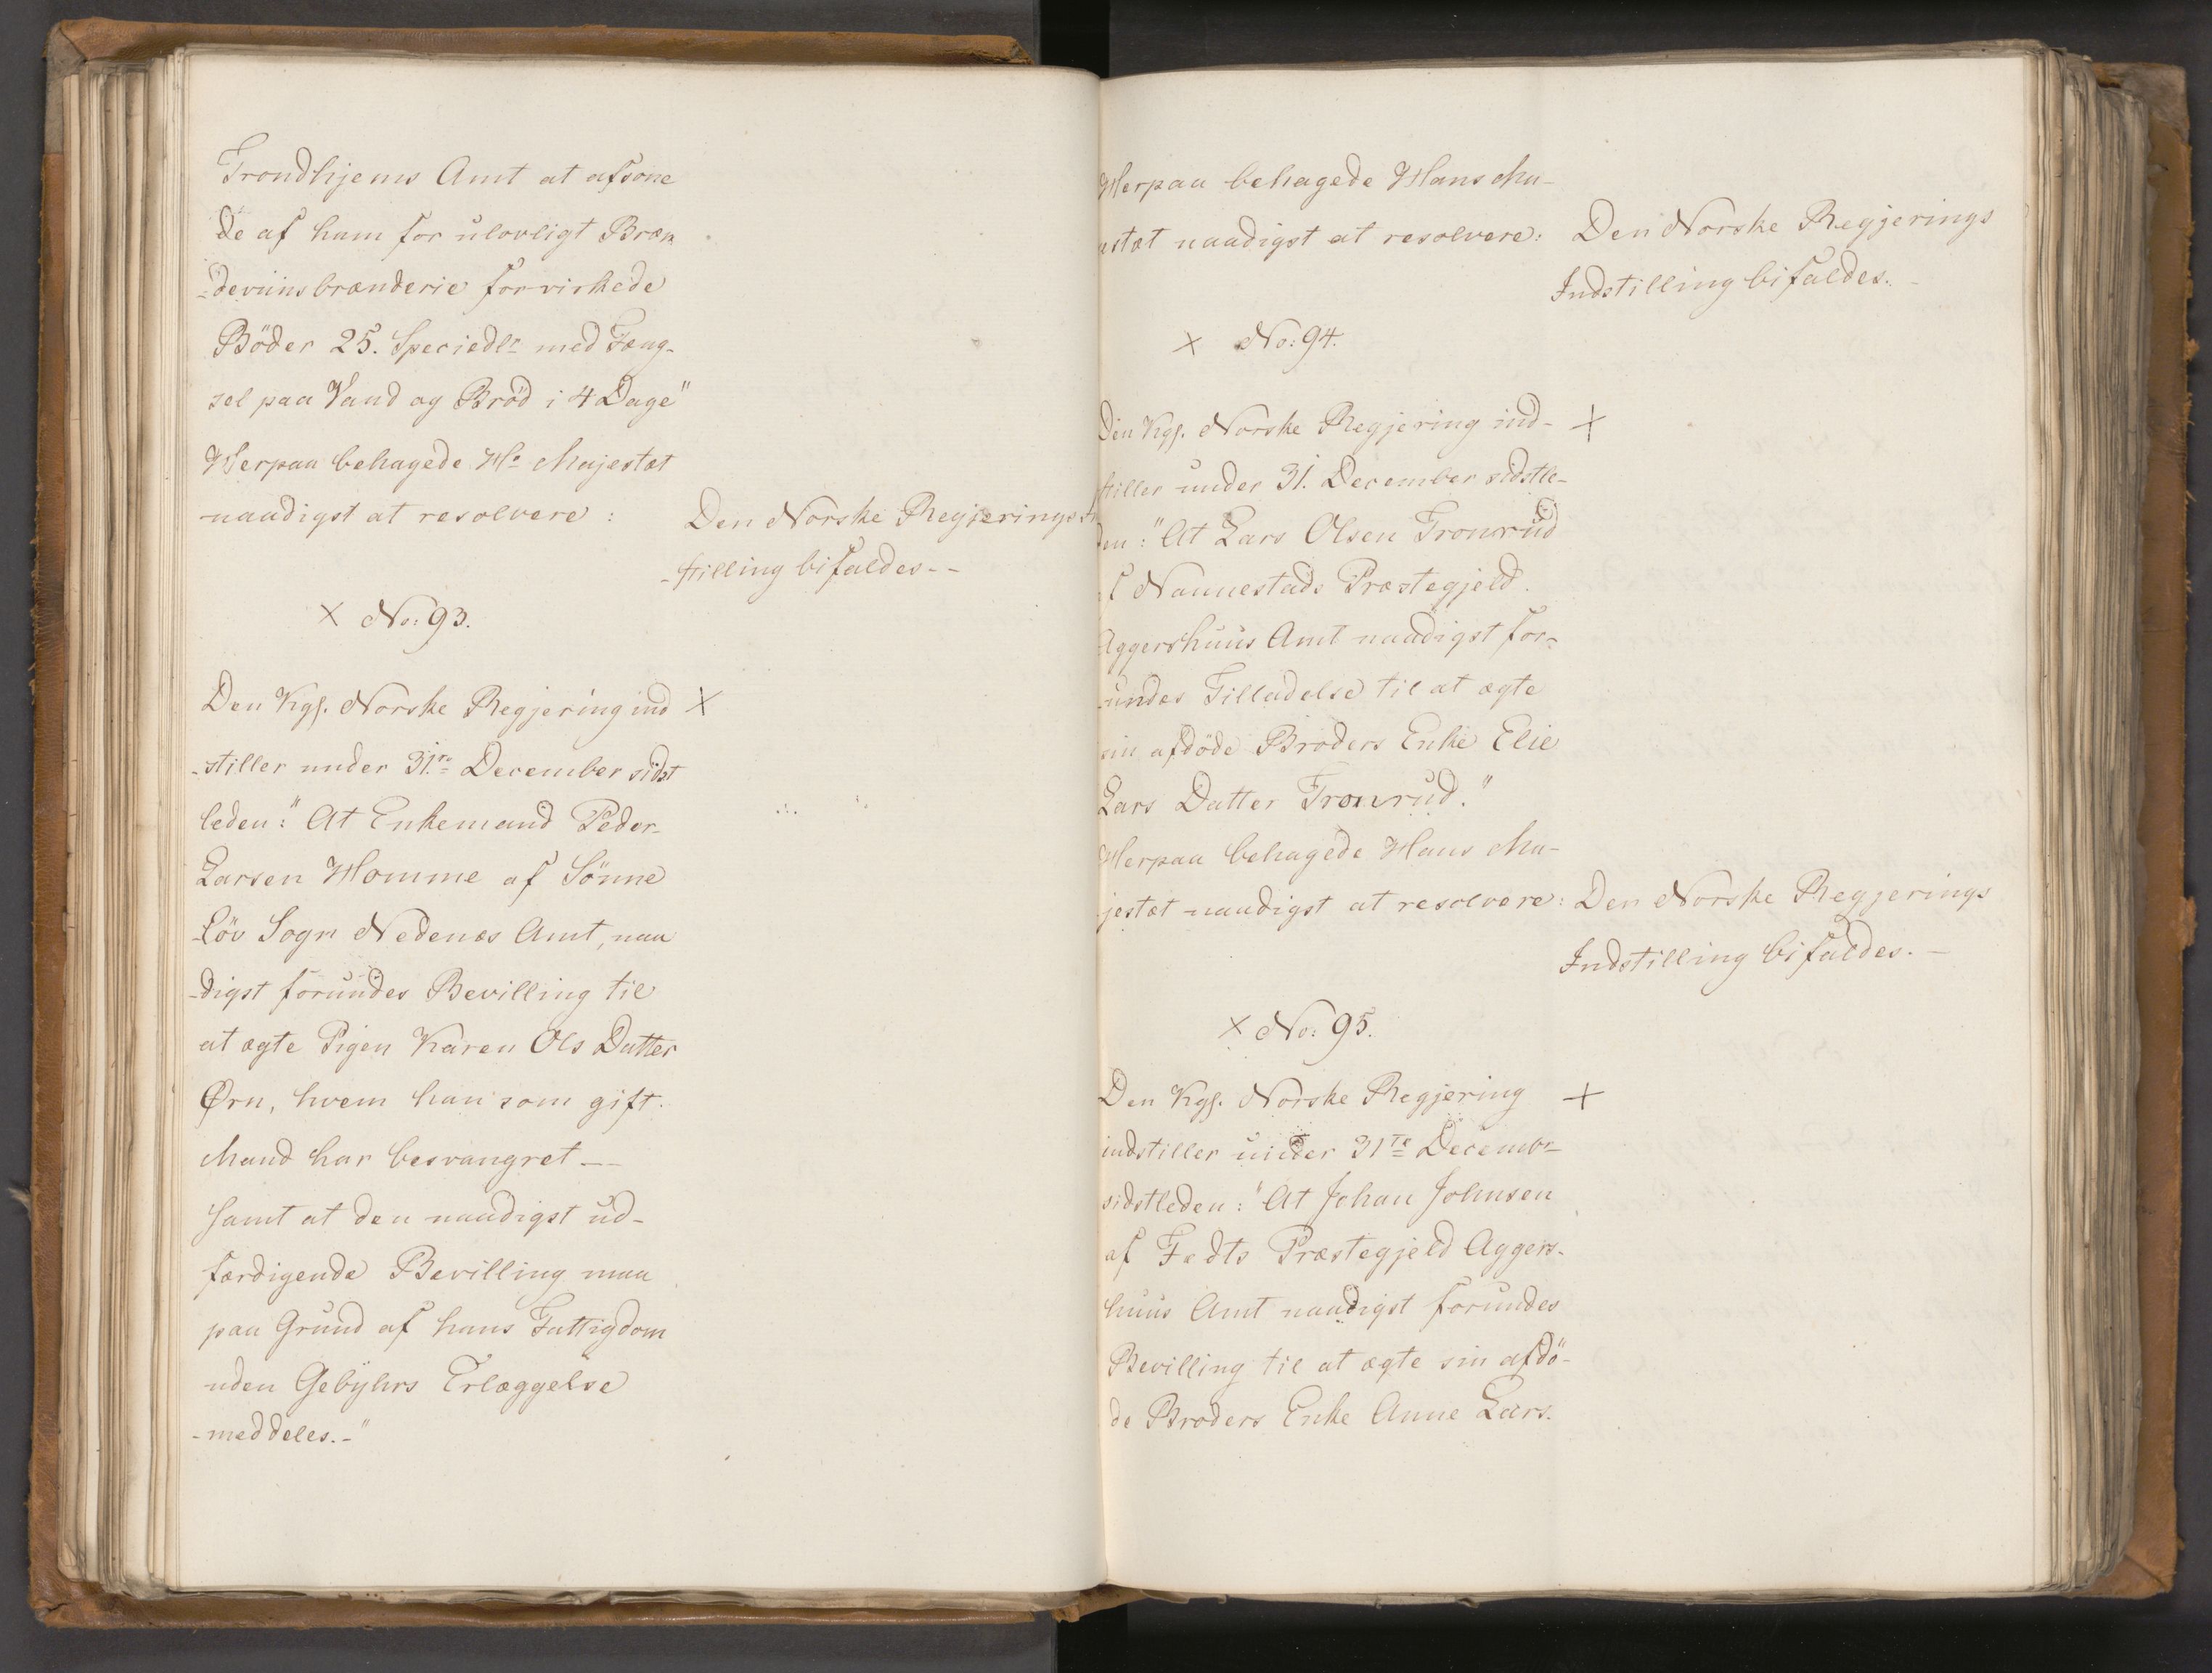 Trondhjems Amt at afsone
de af ham for ulovligt Bræn
-deviinsbrænderie forvirkede
Böder 25. Speciedlr med Fæng-
sel paa Vand og Bröd i 4 Dage"
Herpaa behagede Hs Majestæt
naadigst at resolvere:
Den Norske Regjerings
-stilling bifaldes--
x No: 93.
Den Kgl. Norske Regjering ind x
-stiller under 31te December sidst
leden:" At Enkemand Peder
Larsen Homme af Sönne
-löv Sogn Nedenæs Amt, naa
-digst forundes Bevilling til
at ægte Pigen Karen Ols Datter
Ørn, hvem han som gift
Mand har besvangret --
samt at den naadigst ud-
færdigende Bevilling maa
paa Grund af hans Fattigdom
uden Gebyhrs Erlæggelse
-meddeles.-"
Herpaa behagede Hans Ma-
estæt naadigst at resolvere:
Den Norske Regjerings
Indstilling bifaldes.-
x No: 94.
Den Kgl. Norske Regjering ind- x
stiller under 31. December sidstle-
den: "At Lars Olsen Tronrud
af Nannestads Præstegjeld
Aggershuus Amt naadigst for-
-undes Tilladelse til at ægte
sin afdöde Broders Enke Elie
Lars Datter Tronrud."
Herpaa behagede Hans Ma-
jestæt naadigst at resolvere:
Den Norske Regjerings
Indstilling bifaldes.-
x No: 95.
Den Kgl. Norske Regjering x
indstiller under 31te Decembr
sidstleden: "At Johan Johnsen
af Fedts Præstegjeld Aggers-
huus Amt naadigst forundes
Bevilling til at ægte sin afdö-
de Broders Enke Anne Lars.